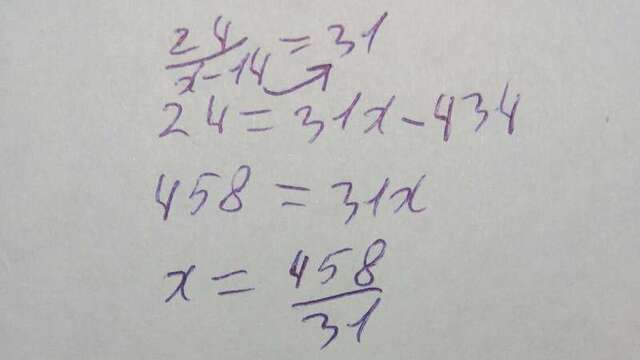 24/(x-14) = 31
24 = 31x - 434
458 = 31x
x = 458/31